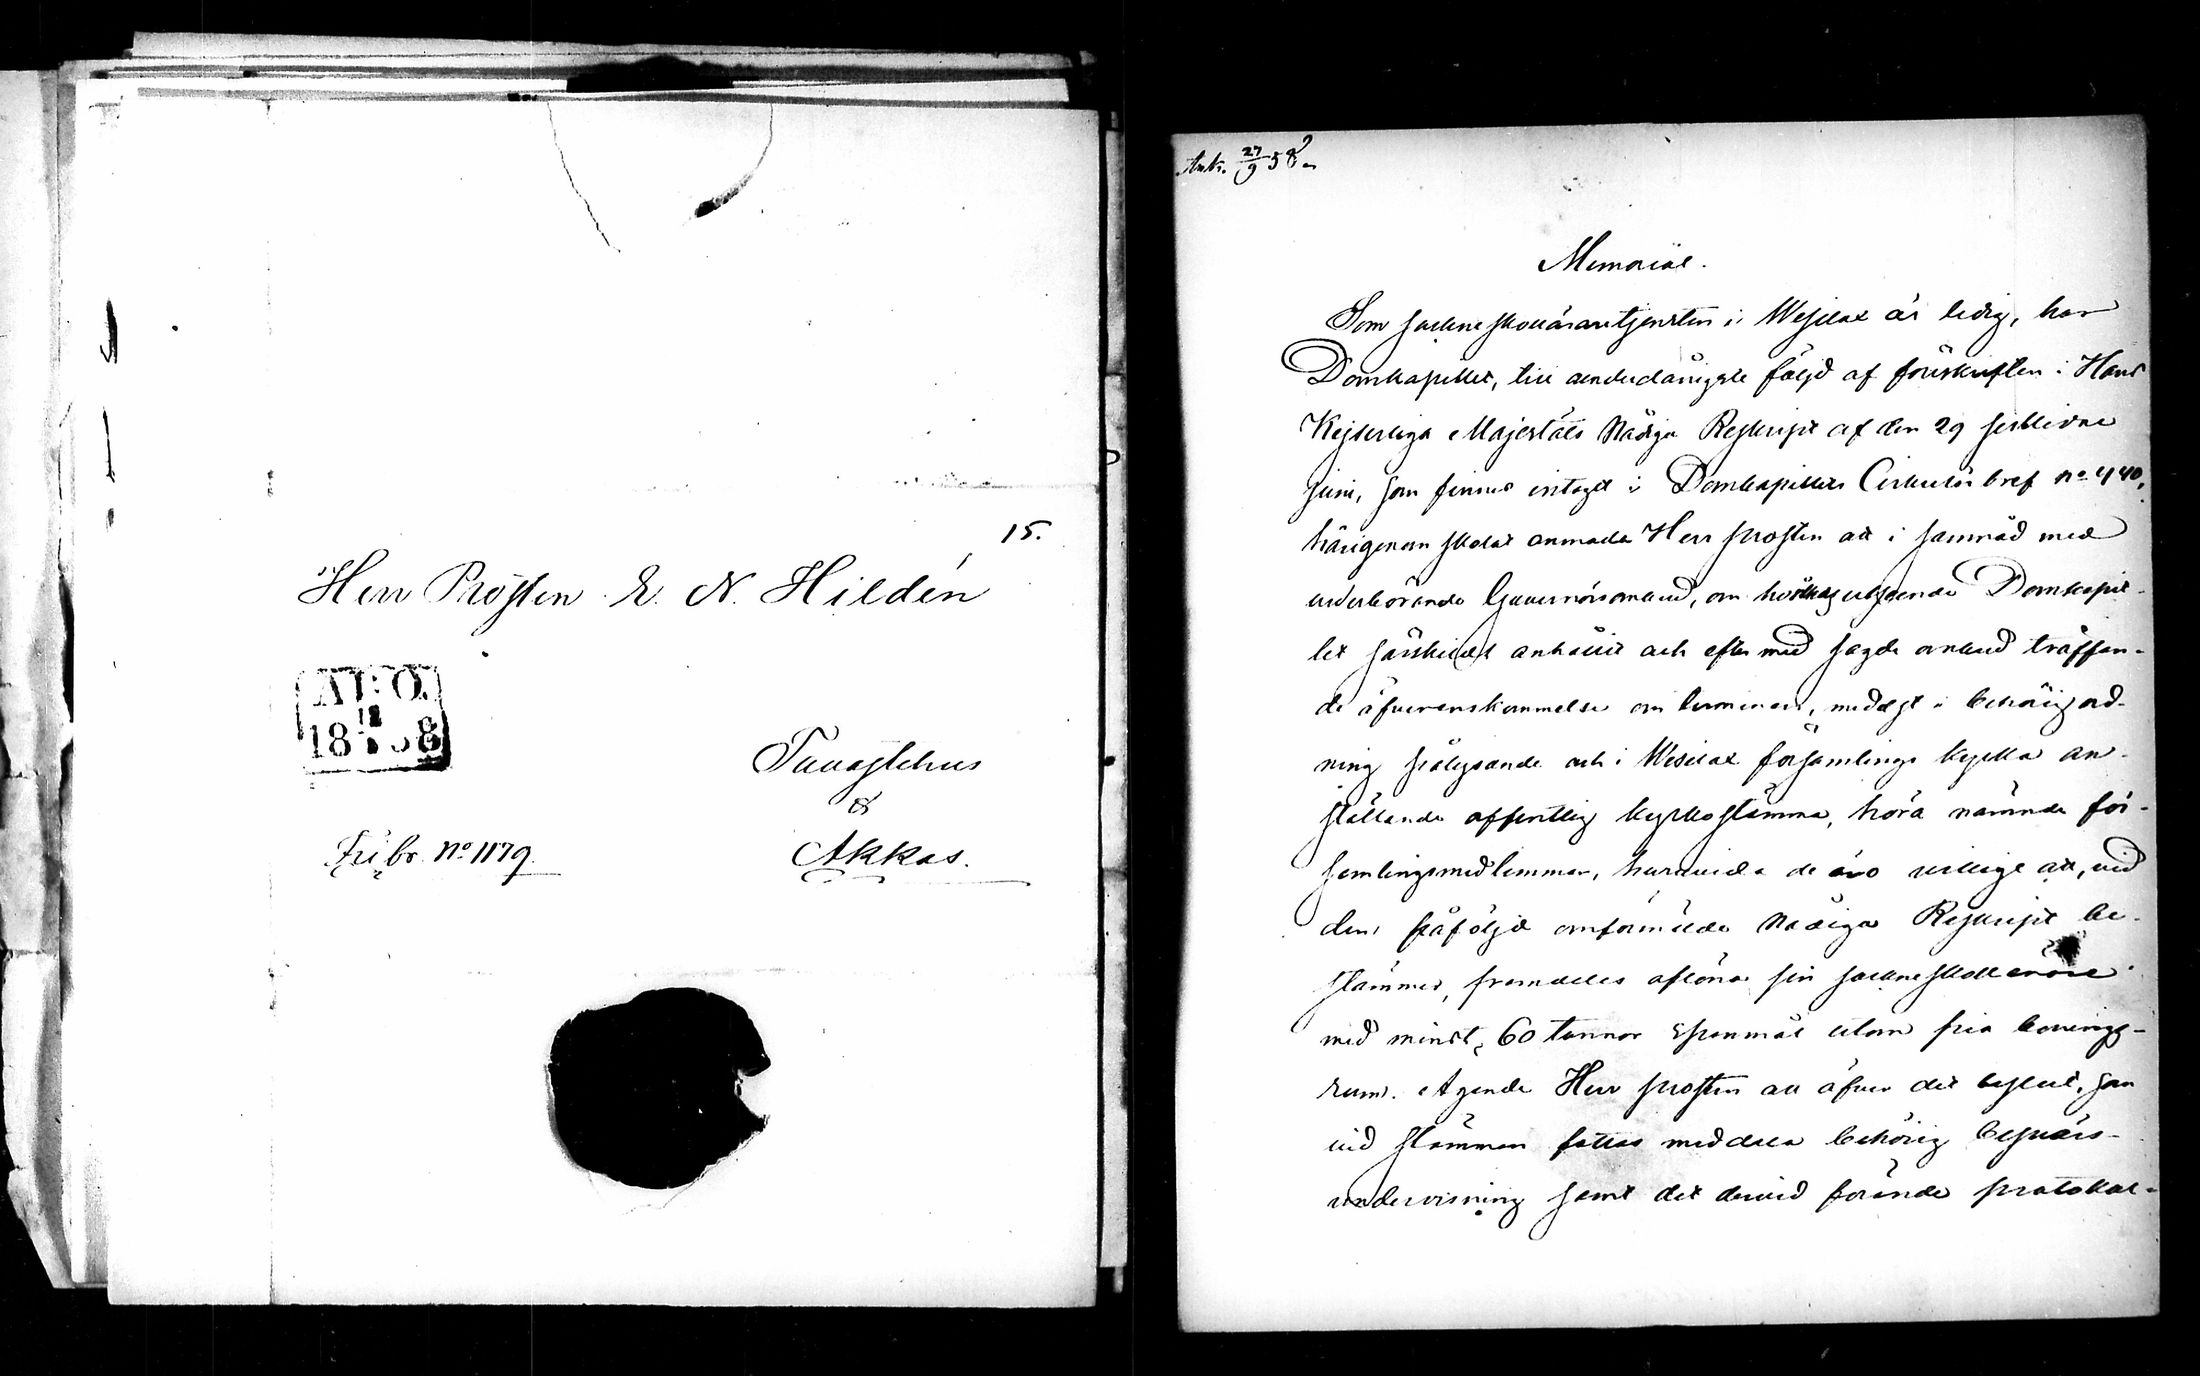 15.
Herr Prosten E. N. Hildén
ÅBO.
1858
Tavastehus
&
Akkas.
Fribr. No 1179.
Ank. 27/9 58.
Memorial.
Som sockneskolläraretjensten i Wesilax är ledig, har
Domkapitlet, till underdånigste följd af föreskriften i Hans
Kejserliga Majestäts Nådiga Reskript af den 29 sistlidne
Juni, som finnes intaget i Domkapitlets Cirkulär bref No 440,
härigenom skolat anmoda Herr Prosten att i samråd med
vederbörande Guvernörsombud, om hvars utseende Domkapit-
let särskildt anhållit och efter med sagde ombud träffan-
de öfverenskommelse om terminen, medelst i behörig ord-
ning pålysande och i Wesilax församlings kyrka an-
ställande offentlig kyrkostämma, höra nämnde för-
samlingsmedlemmar, huruvida de äro villige att, vid
den påföljd omförmälde Nådiga Reskript be-
stämmer, framdeles aflöna sin sockneskollärare
med minst 60 tunnor spanmål utom fria bonings-
rum. Ägande Herr Prosten att öfver det beslut, som
vid stämman fattas meddela behörig besvärs-
undervisning samt det dervid förande protokol-